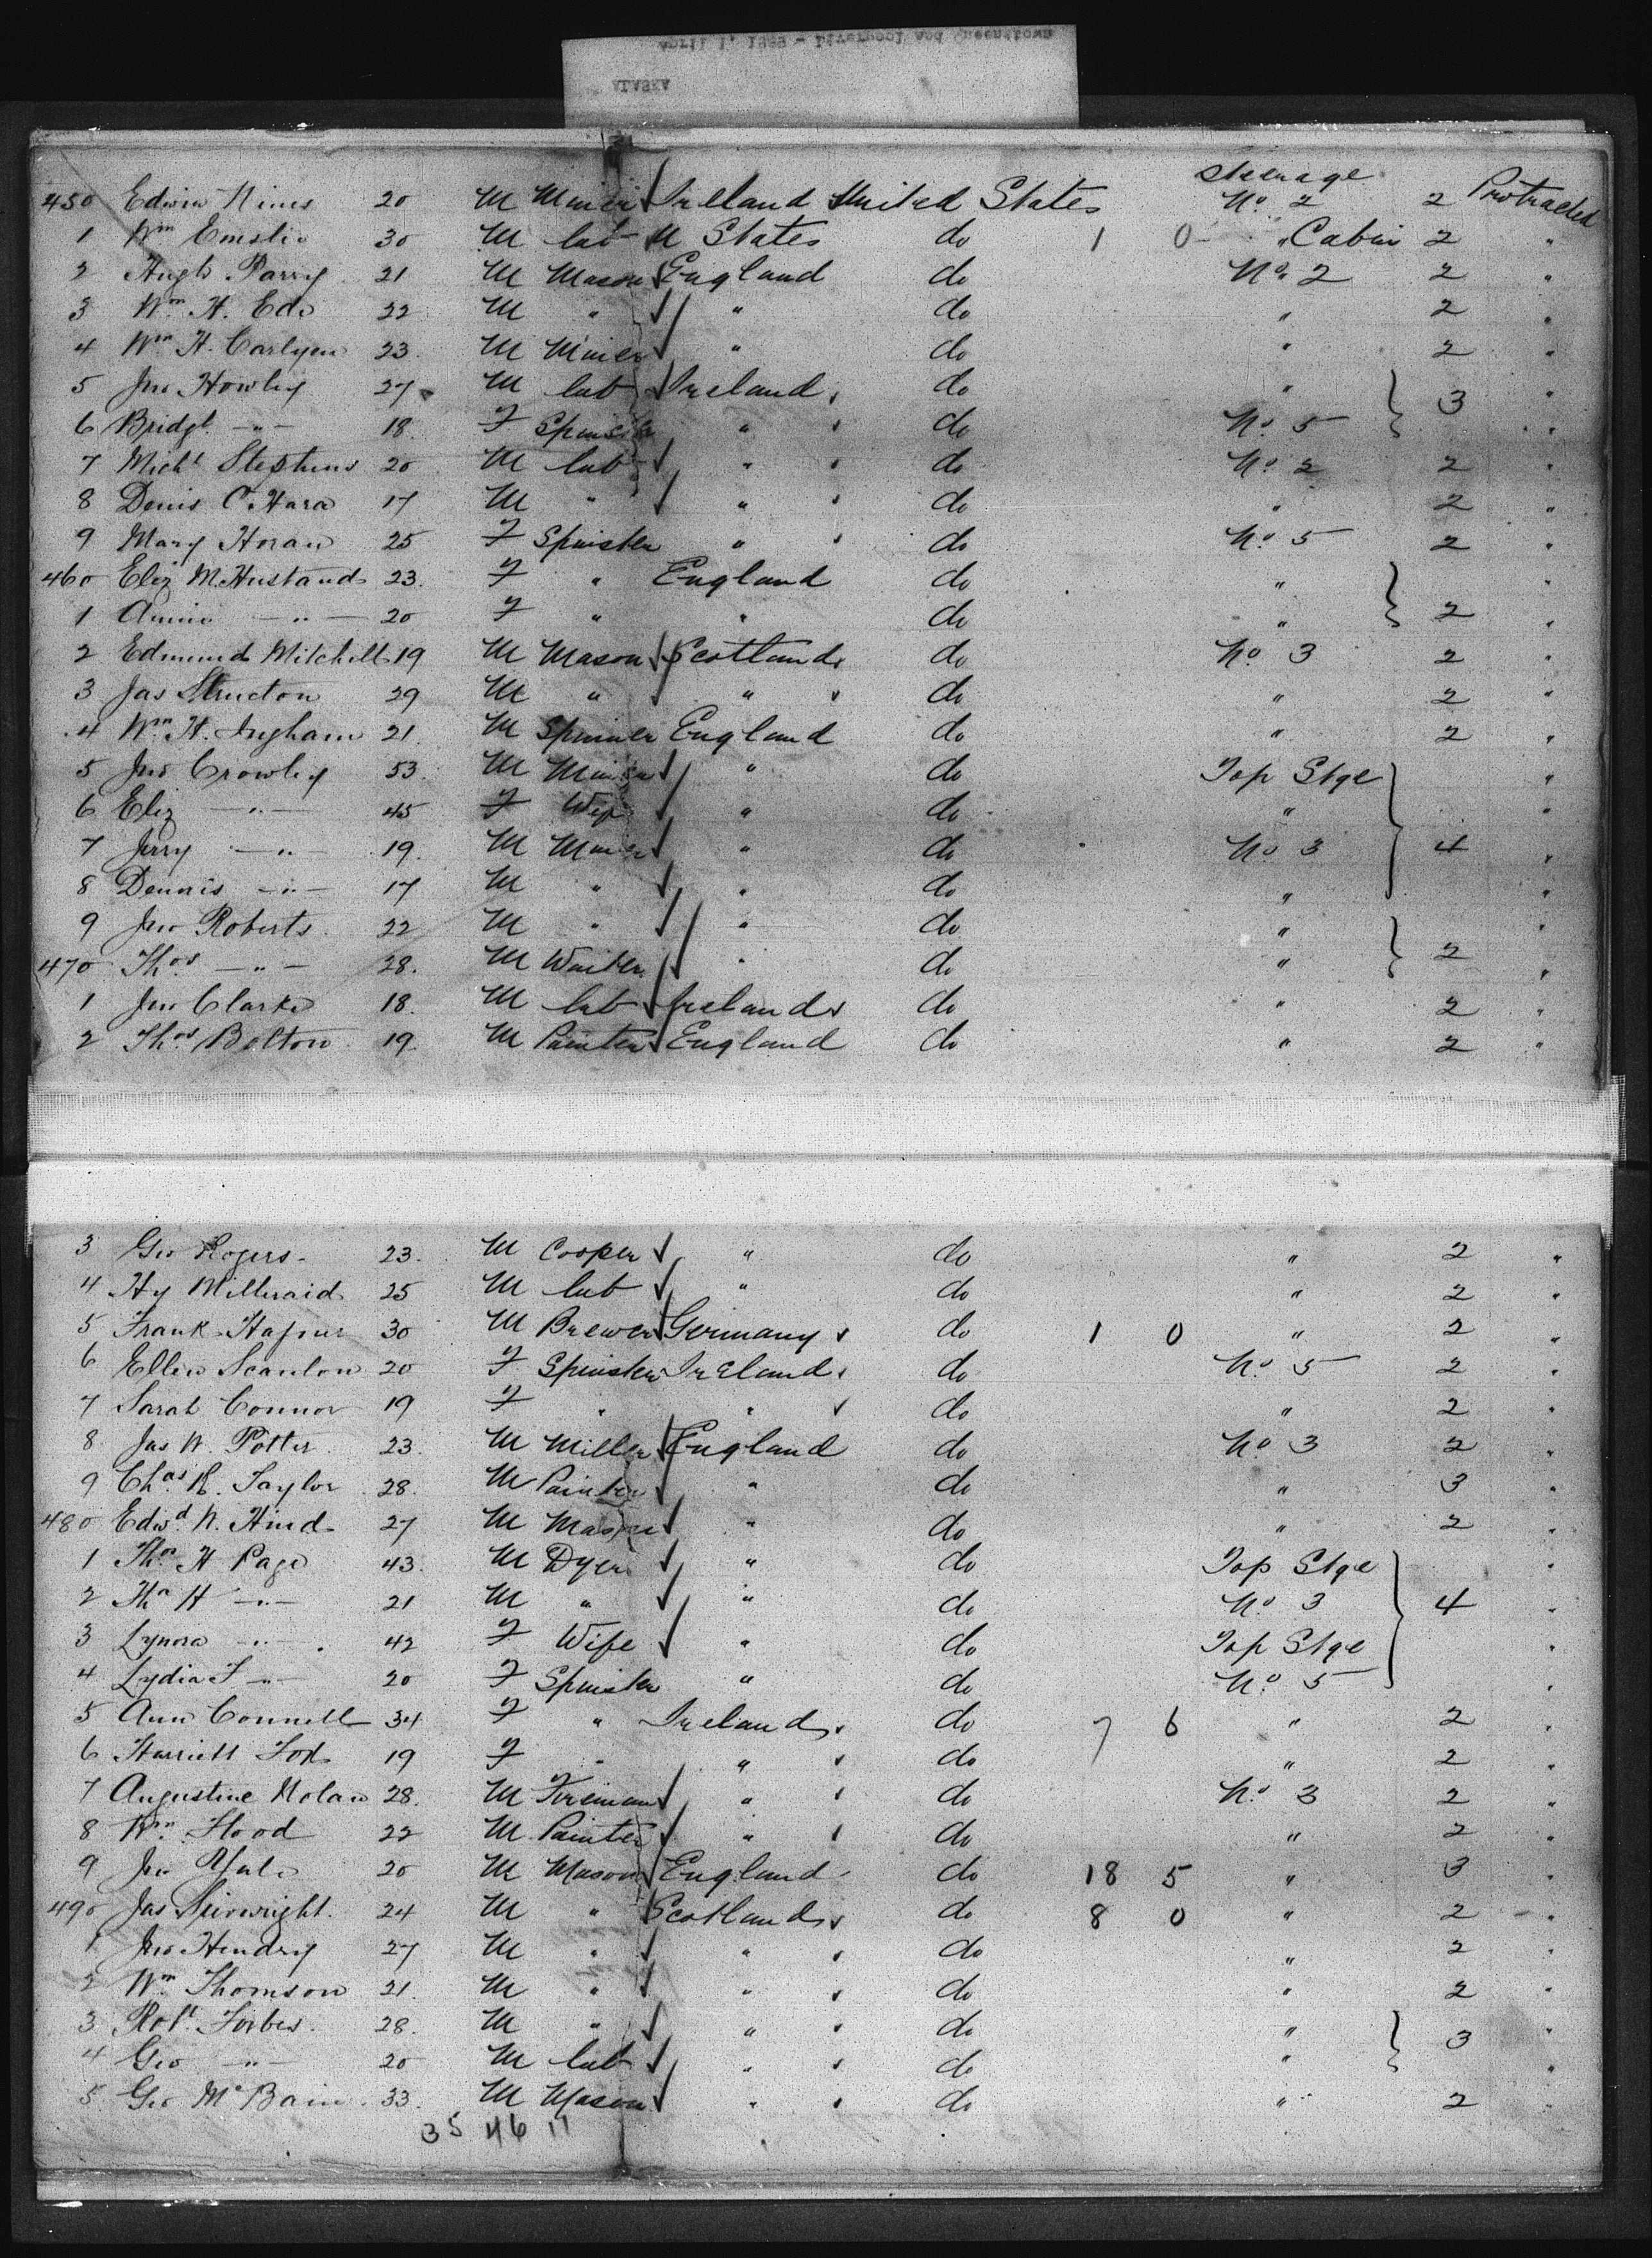 ALASKA
450 Edwin Hines 20 M Miner Ireland United States Steerage No. 2 2 Protracted
1 Wm Emslie 30 M lab U States do 1 0 " Cabin 2 "
2 Hugh Parry 21 M Mason England do No. 2 2 "
3 Wm H. Ede 22 M " " do " 2 "
4 Wm H. Carlyon 23 M Miner " do " 2 "
5 Jno Howley 27 M lab Ireland do " 3 "
6 Bridgt -"- 18 F Spinster " do No. 5 "
7 Michl Stephens 20 M lab " do No. 2 2 "
8 Denis O'Hara 17 M " " do " 2 "
9 Mary Horan 25 F Spinster " do No. 5 2 "
460 Eliz 23 F " England do " "
1 Annie -"- 20 F " " do " 2 "
2 Edmund Mitchell 19 M Mason Scotland do No. 3 2 "
3 Jas 29 M " " do " 2 "
4 Wm H. Ingham 21 M Spinner England do " 2 "
5 Jno Crowley 53 M Miner " do Top Stge "
6 Eliz -"- 45 F Wife " do " "
7 Jerry -"- 19 M Miner " do No 3 4 "
8 Dennis -"- 17 M " " do " "
9 Jno Roberts 22 M " " do " "
470 Thos -"- 28 M Waiter " do " 2 "
1 Jno Clarke 18 M lab Ireland do " 2 "
2 Thos Bolton 19 M Painter England do " 2 "
3 Geo Rogers 23 M Cooper " do " 2 "
4 Hy 25 M lab " do " 2 "
5 Frank Hafner 30 M Brewer Germany do 1 0 " 2 "
6 Ellen Scanlon 20 F Spinster Ireland do No. 5 2 "
7 Sarah Connor 19 F " " do " 2 "
8 Jas W. Potter 23 M Miller England do No 3 2 "
9 Chas R. Taylor 28 M Painter " do " 3 "
480 Edwd W. Hind 27 M Mason " do " 2 "
1 Thos H Page 43 M Dyer " do Top Stge "
2 Thos H -"- 21 M " " do No 3 4 "
3 Lynora -"- 42 F Wife " do Top Stge "
4 Lydia F -"- 20 F Spinster " do No. 5 "
5 Ann Connell 34 F " Ireland do 7 6 " 2 "
6 Harriett Fox 19 F " " do " 2 "
7 Augustine Nolan 28 M Fireman " do No 3 2 "
8 Wm Flood 22 M Painter " do " 2 "
9 Jno 20 M Mason England do 18 5 " 3 "
490 Jas 24 M " Scotland do 8 0 " 2 "
1 Jno Hendry 27 M " " do " 2 "
2 Wm Thomson 21 M " " do " 2 "
3 Robt Forbes 28 M " " do " 3 "
4 Geo -"- 20 M lab " do " "
5 Geo McBain 33 M Mason " do " 2 "
35 46 11